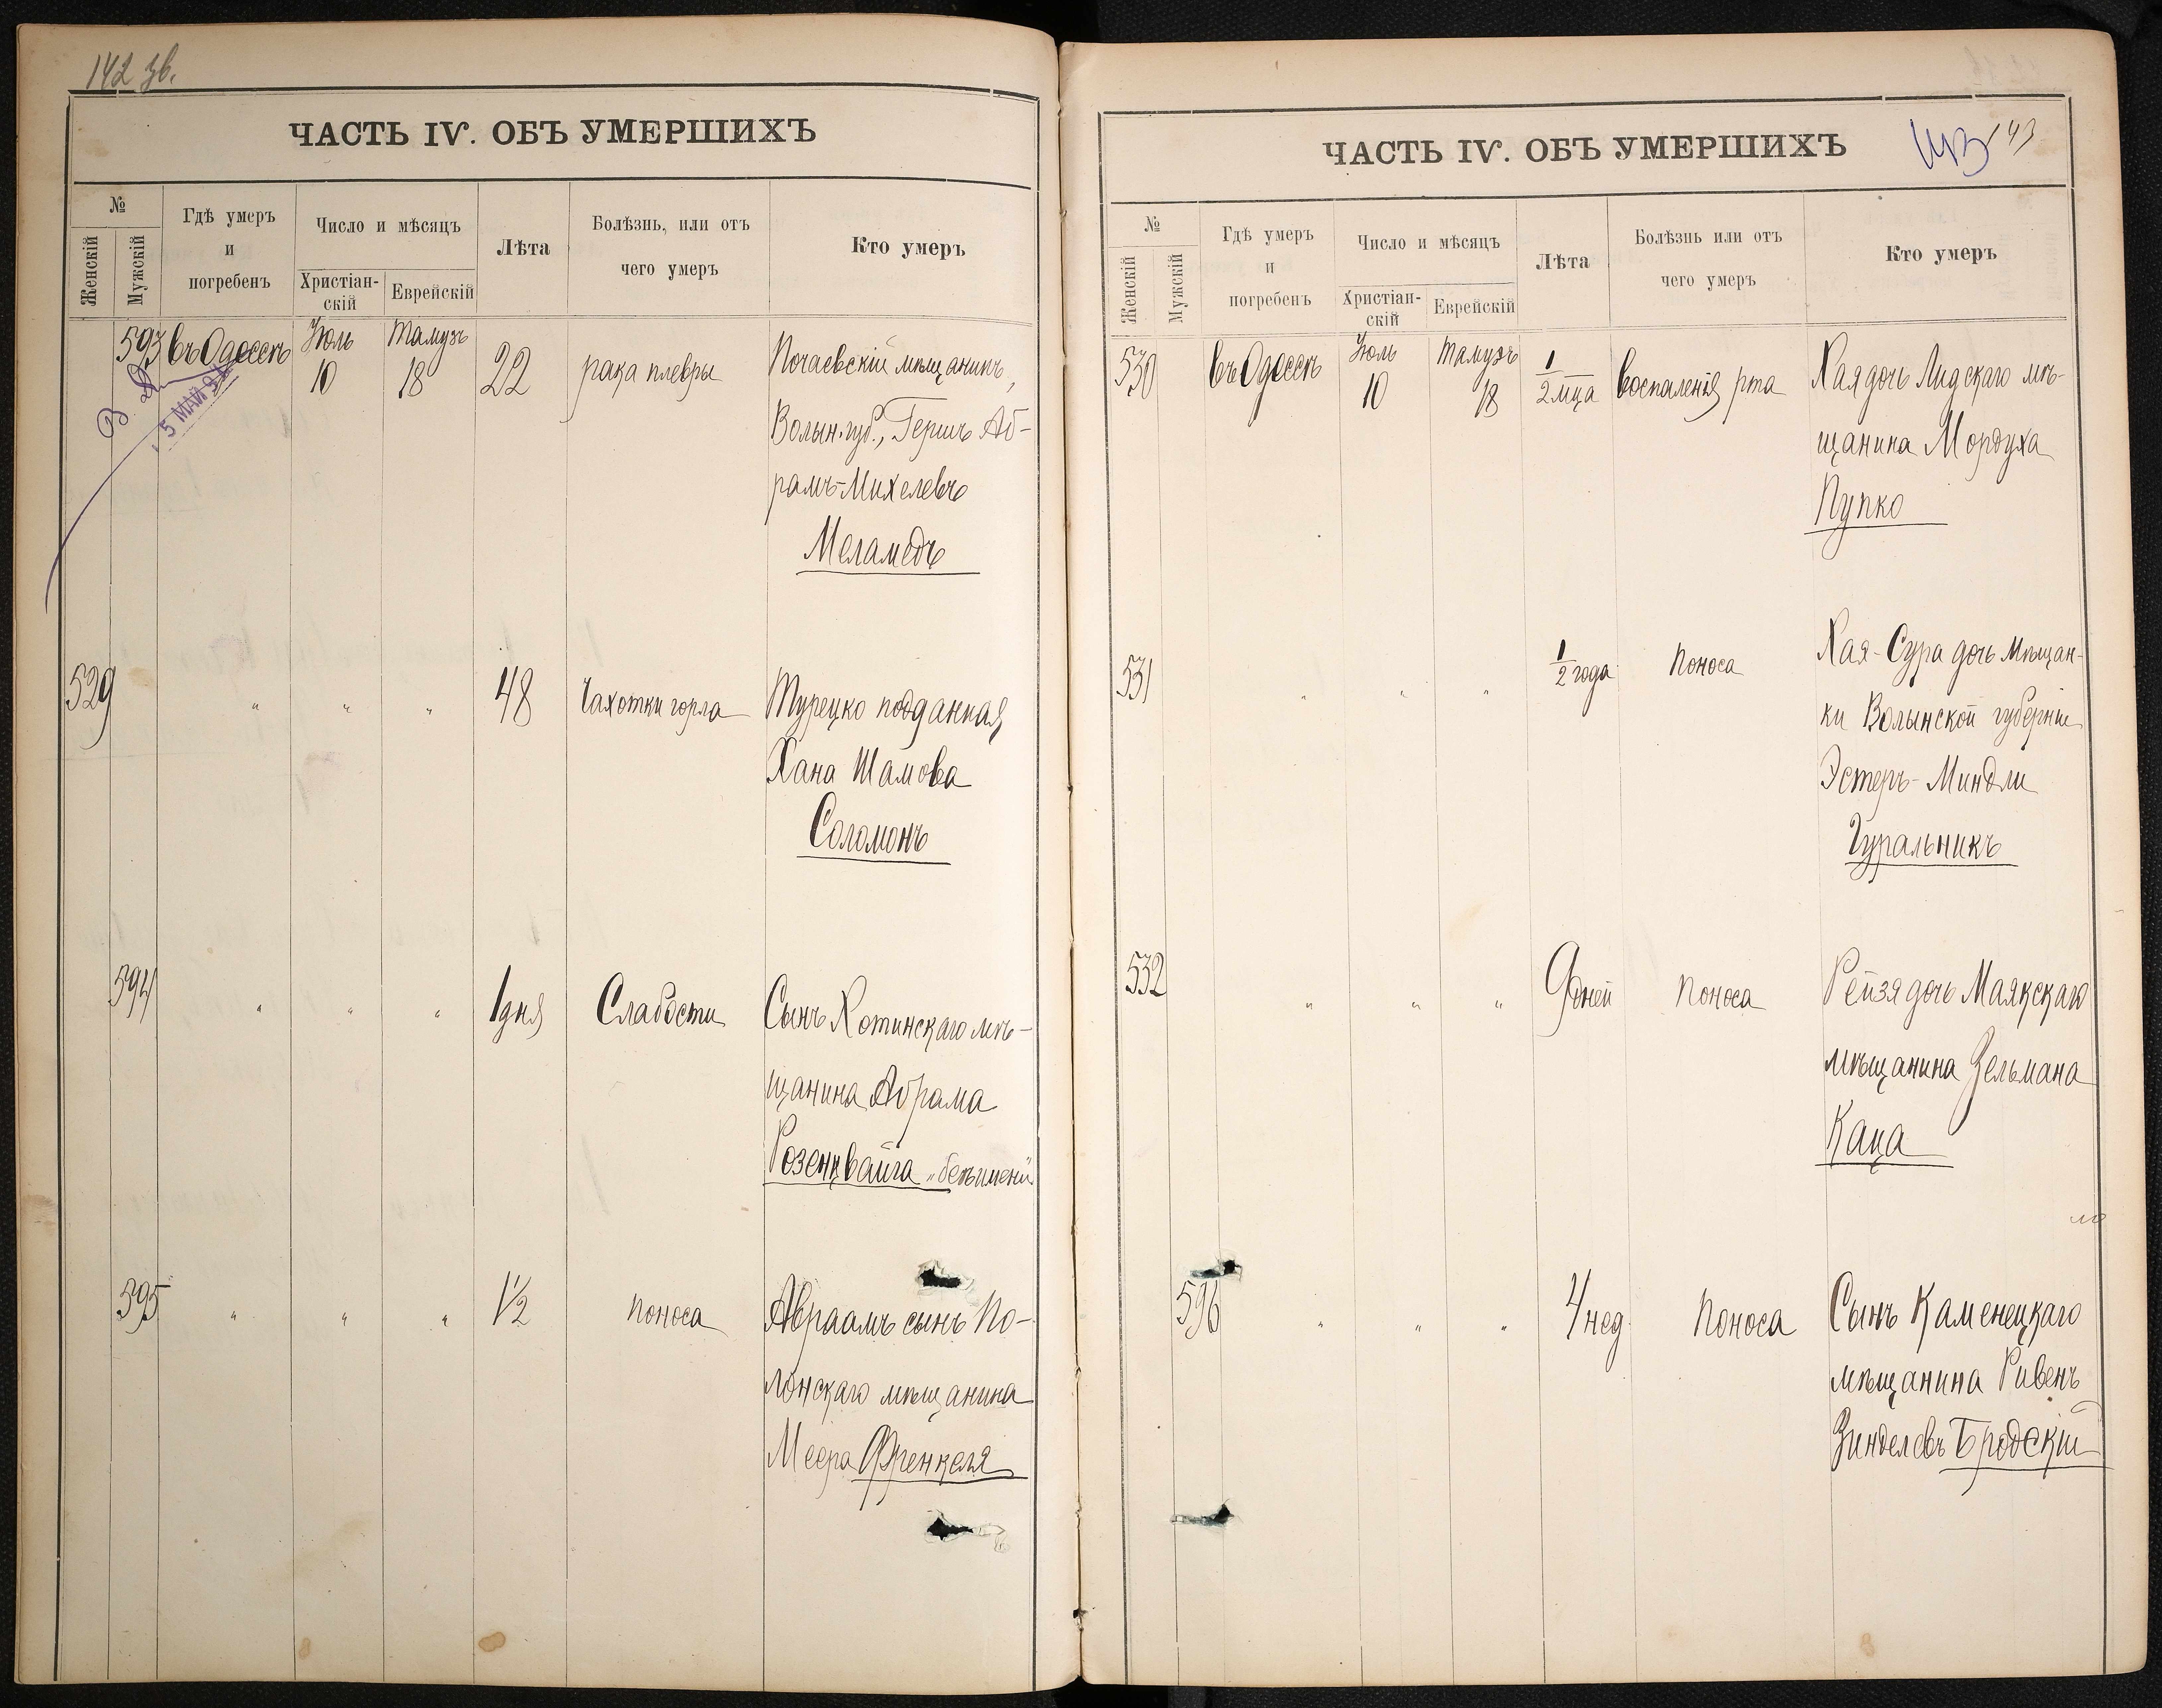 142 зв.
ЧАСТЬ IV. ОБЪ УМЕРШИХЪ
№
Женскій
Мужскій
Гдѣ умеръ
и
погребенъ
Число и мѣсяцъ
Христіан-
скій
Еврейскій
Лѣта
Болѣзнь, или отъ
чего умеръ
Кто умеръ
593 въ Одессѣ Іюль 10 Тамузъ 18 22 рака плевры Почаевскій мѣщанинъ,
5 МАЙ 94
Волын. губ., Гершъ Аб-
рамъ-Михелевъ
Меламедъ
529 " " " 48 Чахотки горла Турецко подданная
Хана Шамова
Соломонъ
594 " " " 1 дня Слабости Сынъ Хотинскаго мѣ-
щанина Абрама
Розенцвайга "безъимени"
595 " " " 1½ поноса Авраамъ сынъ По-
лонскаго мѣщанина
Меера Френкеля
ЧАСТЬ IV. ОБЪ УМЕРШИХЪ
143
№
Женскій
Мужскій
Гдѣ умеръ
и
погребенъ
Число и мѣсяцъ
Христіан-
скій
Еврейскій
Лѣта
Болѣзнь или отъ
чего умеръ
Кто умеръ
530 въ Одессѣ Іюль 10 Тамузъ 18 1/2 м‑ца воспаленія рта Хая дочь Лидскаго мѣ-
щанина Мордуха
Пупко
531 " " " 1/2 года поноса Хая-Сура дочь мѣщан-
ки Волынской губерніи
Эстеръ-Миндли
Гуральникъ
532 " " " 9 дней поноса Рейзя дочь Маякскаго
мѣщанина Зельмана
Каца
596 " " " 4 нед. поноса Сынъ Каменецкаго
мѣщанина Ривенъ
Зинделевъ Бродскій